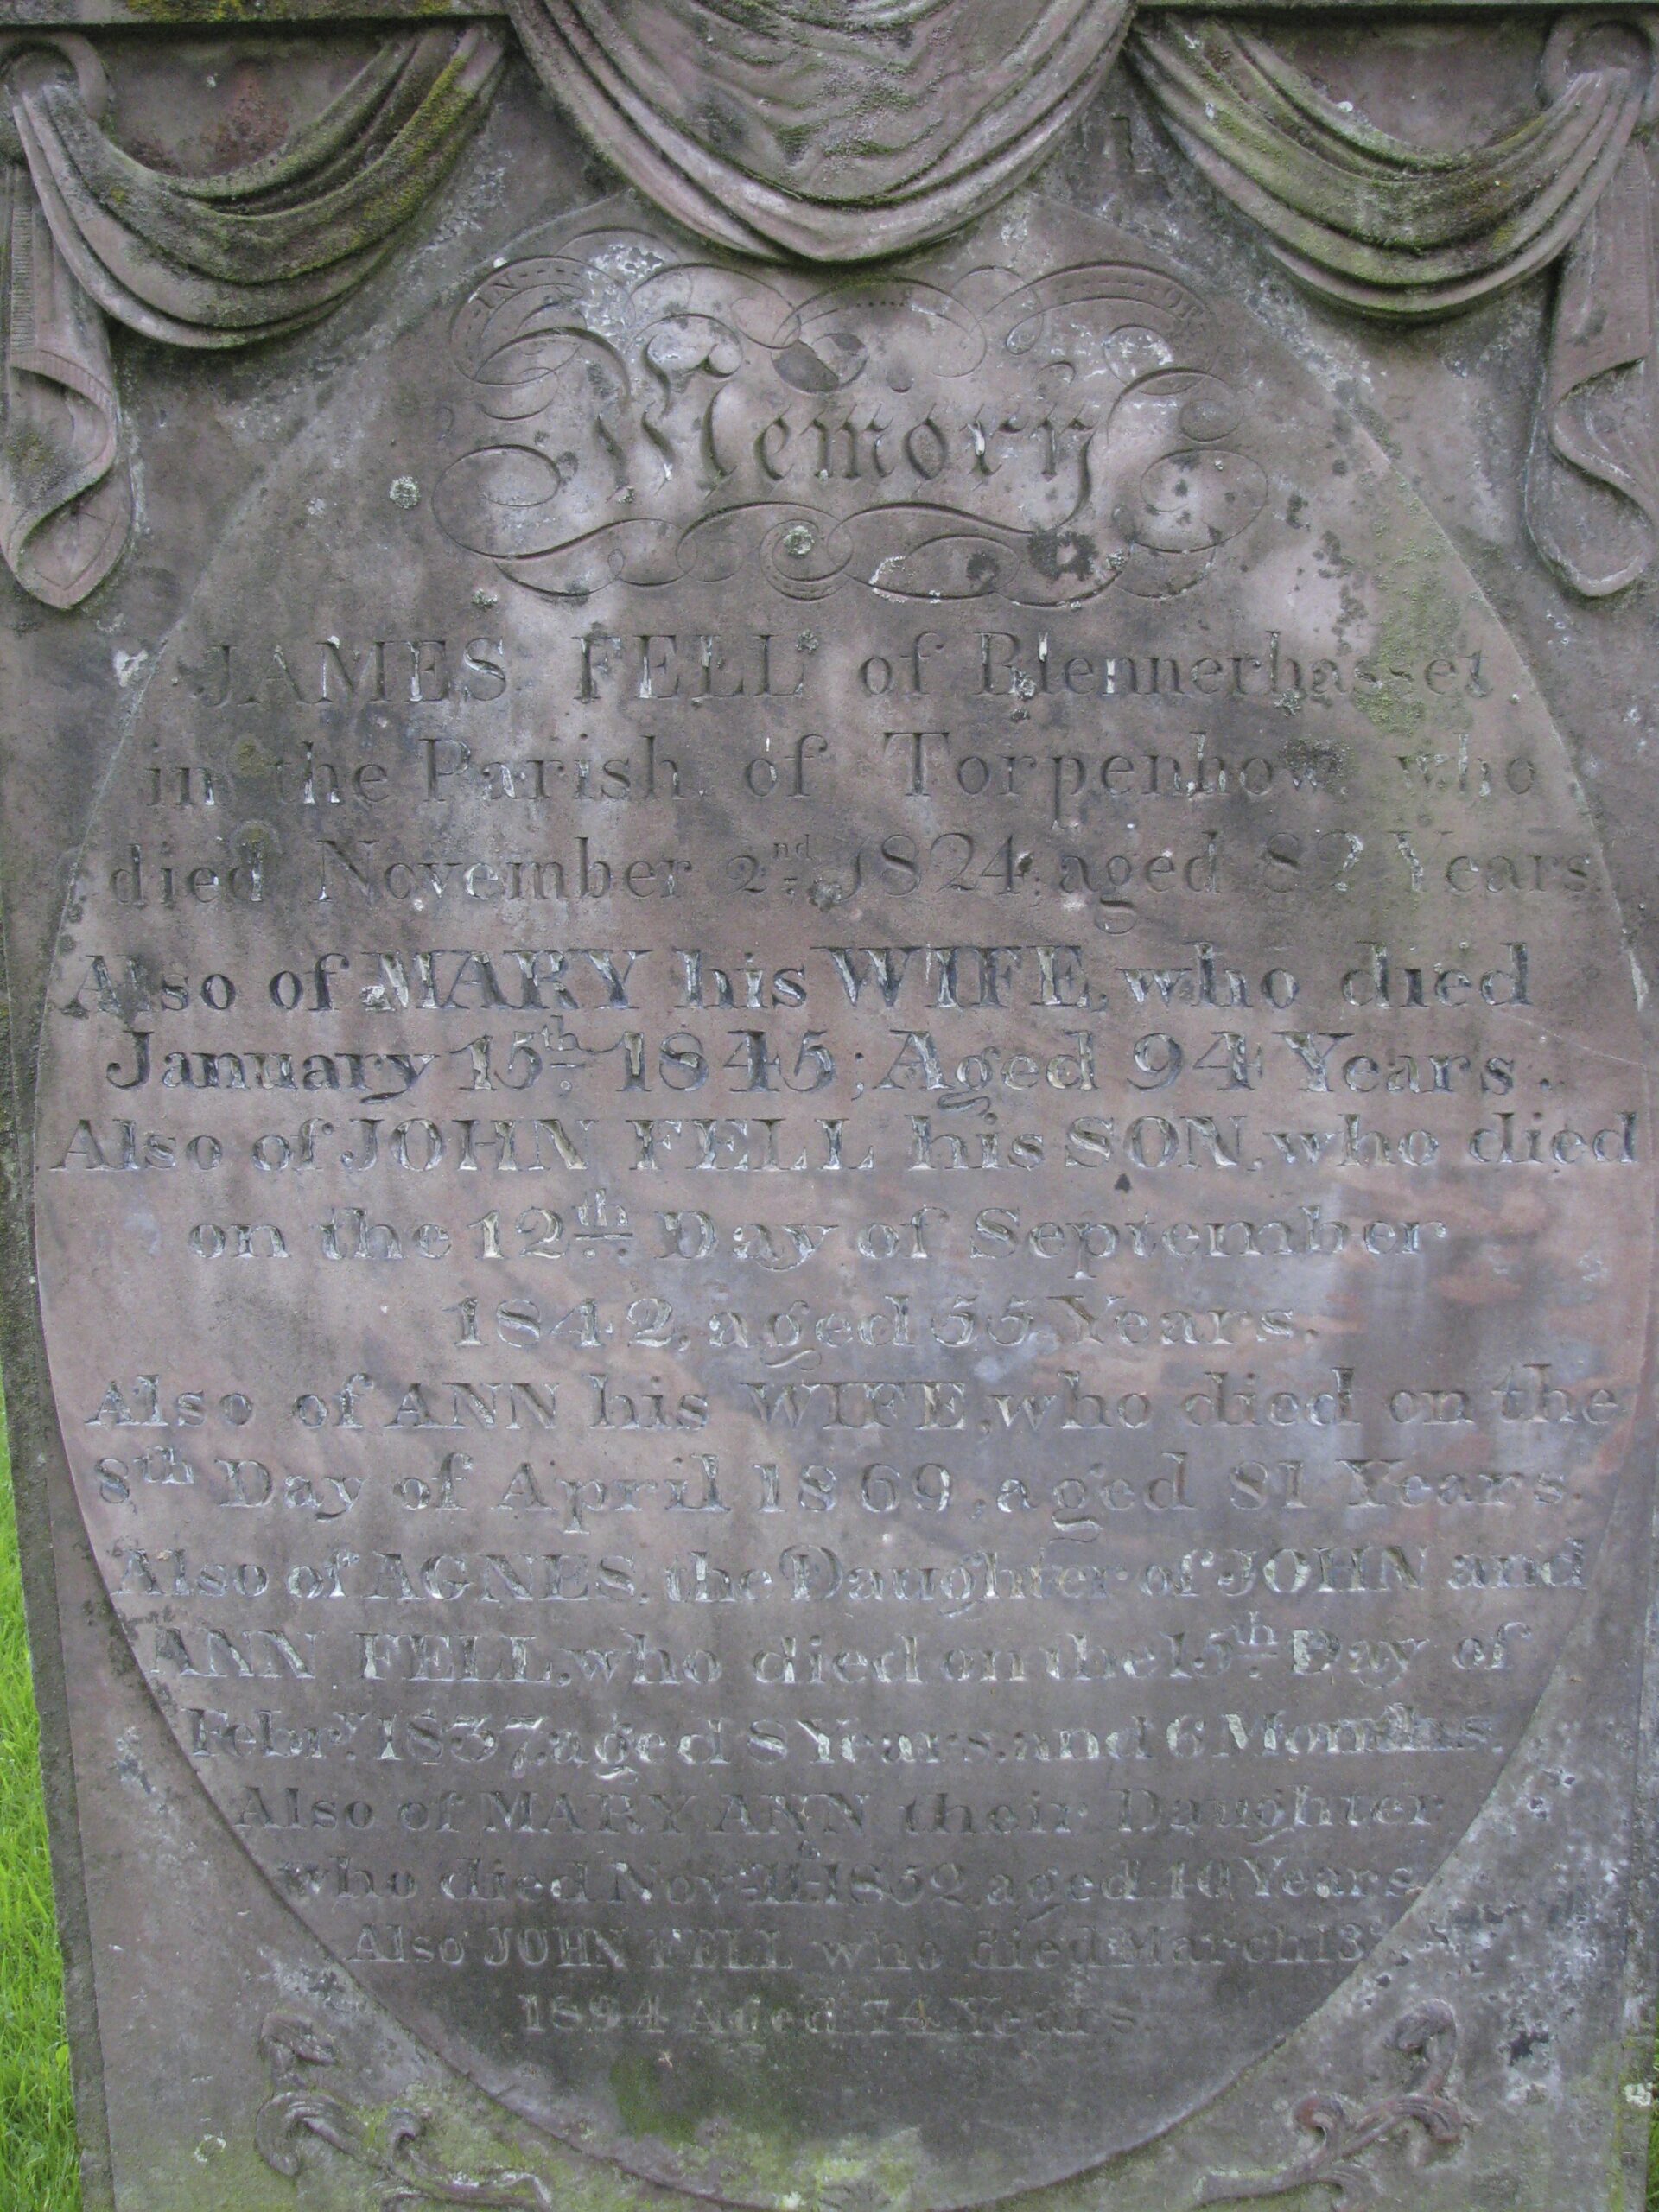 IN
OF
Memory
JAMES FELL of Blennerhasset
in the Parish of Torpenhow who
died November 2nd 1824; aged 82 Years.
Also of MARY his WIFE, who died
January 15th 1845; Aged 94 Years.
Also of JOHN FELL his SON, who died
on the 12th Day of September
1842, aged 55 Years.
Also of ANN his WIFE, who died on the
8th Day of April 1869, aged 81 Years.
Also of AGNES, the Daughter of JOHN and
ANN FELL, who died on the 15th Day of
Febry. 1837, aged 8 Years, and 6 Months.
Also of MARY ANN their Daughter
who died Novr 1852, aged 10 Years
Also JOHN FELL who died March 13th
1894 Aged 74 Years.